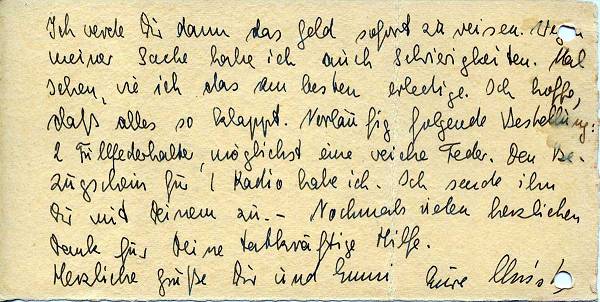 Ich werde Dir dann das Geld sofort zu weisen. Wegen
meiner Sache habe ich auch Schwierigkeiten. Mal
sehen, wie ich das am besten erledige. Ich hoffe,
daß alles so klappt. Vorläufig folgende Bestellung:
2 Füllfederhalter, möglichst eine weiche Feder. Den Be-
zugschein für 1 Radio habe ich. Ich sende ihn
Dir mit Deinem zu. — Nochmals vielen herzlichen
Dank für Deine tatkräftige Hilfe.
Herzliche Grüße Dir und Emmi Eure